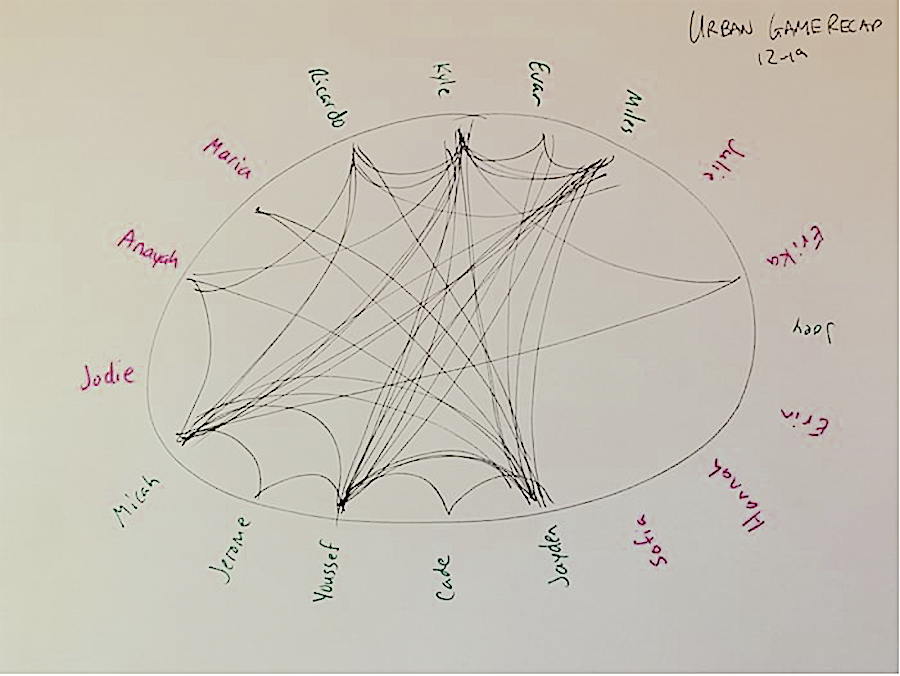 URBAN GAME RECAP
12-19
Kyle
Evan
Miles
Ricardo
Julie
Maria
Erika
Anayah
Joey
Jodie
Erin
Hannah
Micah
Sofia
Jerome
Youssef
Cade
Jayden